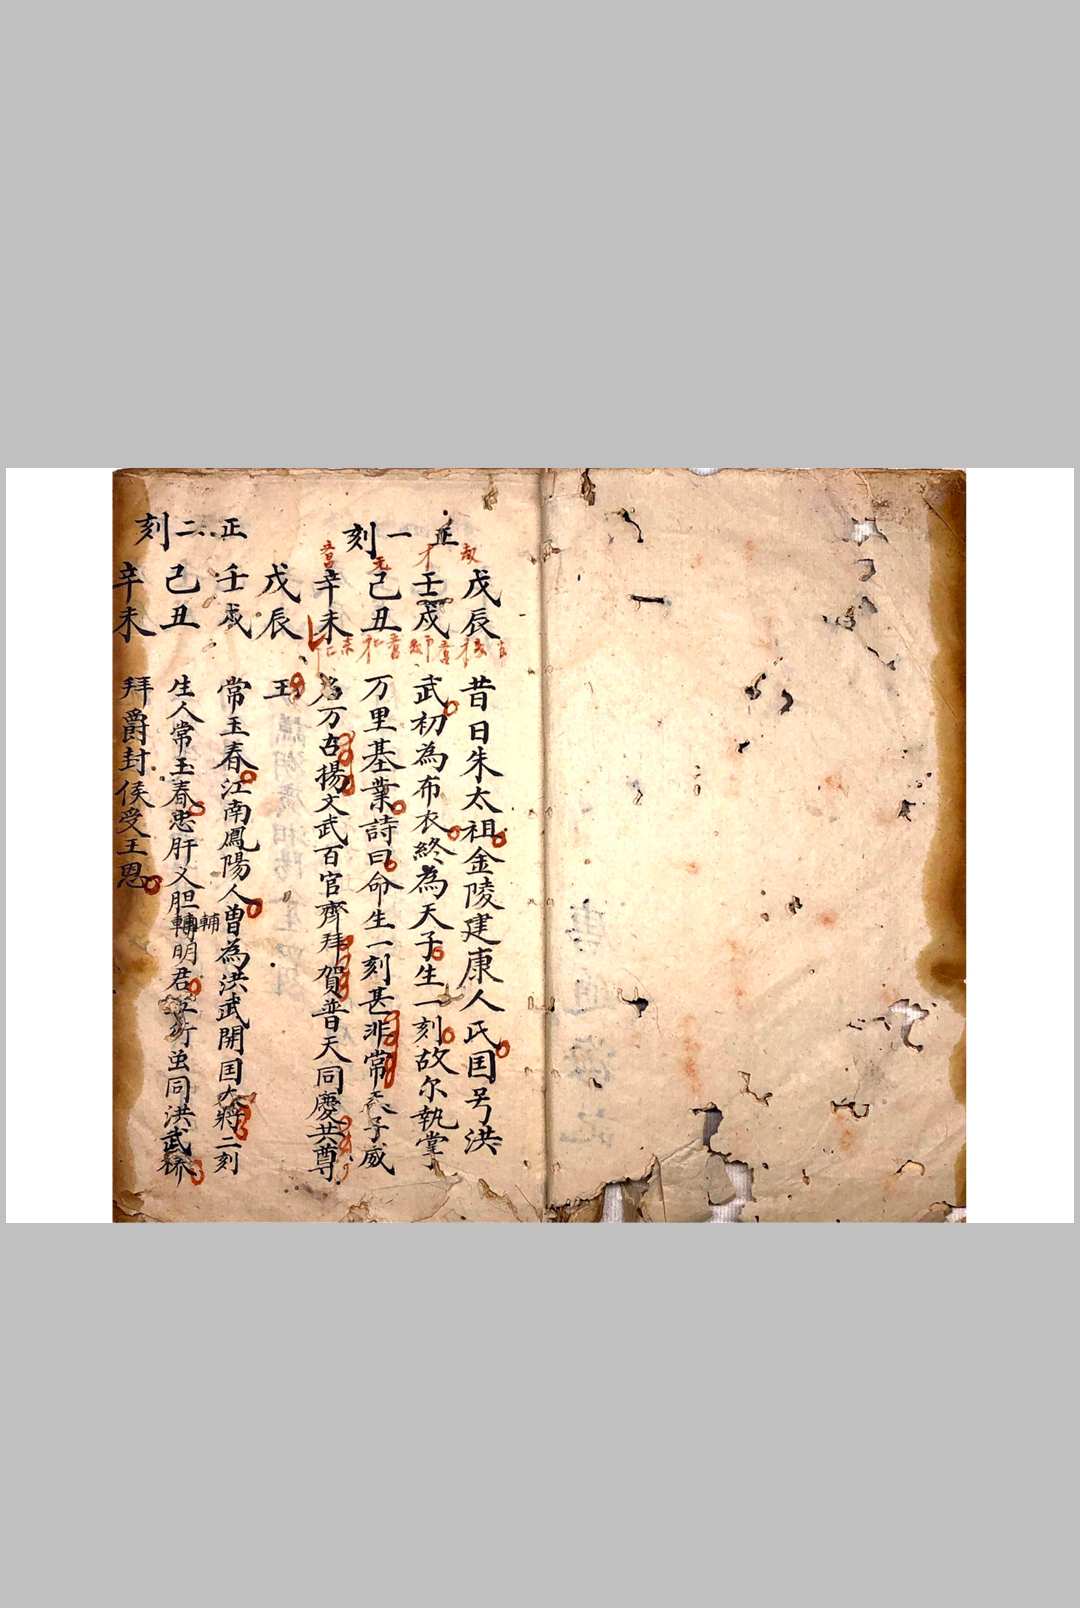 正一刻
戊辰 昔日朱太祖金陵建康人氏囯号洪
壬戍 武初為布衣終為天子生一刻故尔執掌
己丑 万里基業詩曰命生一刻甚非常天子威
辛未 万古揚文武百官齊拜賀普天同慶共尊
王
正二刻
戊辰
壬戍 常玉春江南鳳陽人曽為洪武開囯大將二刻
己丑 生人常玉春忠肝义胆輔明君 虽同洪武
辛未 拜爵封侯受王恩